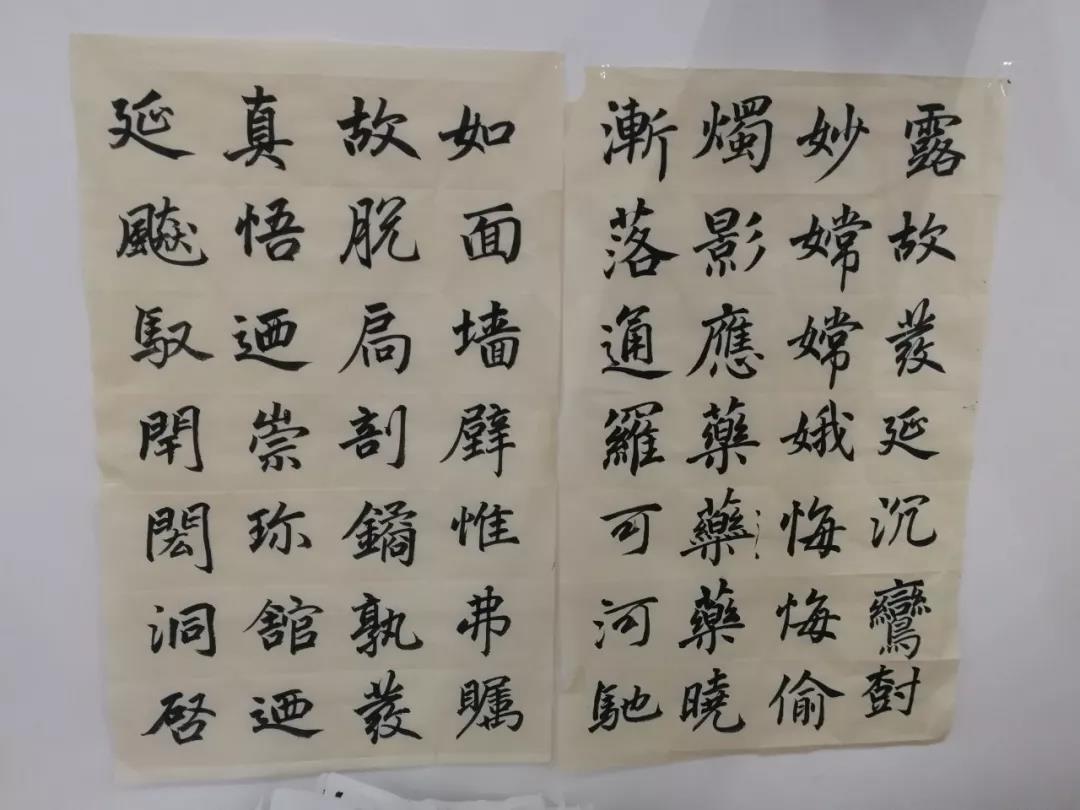 露故發延沉鸞對
妙嫦嫦娥悔悔偷
燭影應藥藥藥曉
漸落通羅可河馳
如面墙壁惟弗矚
故脱扃剖鐍孰發
真悟迺崇珎舘迺
延飈馭閈閎洞啓